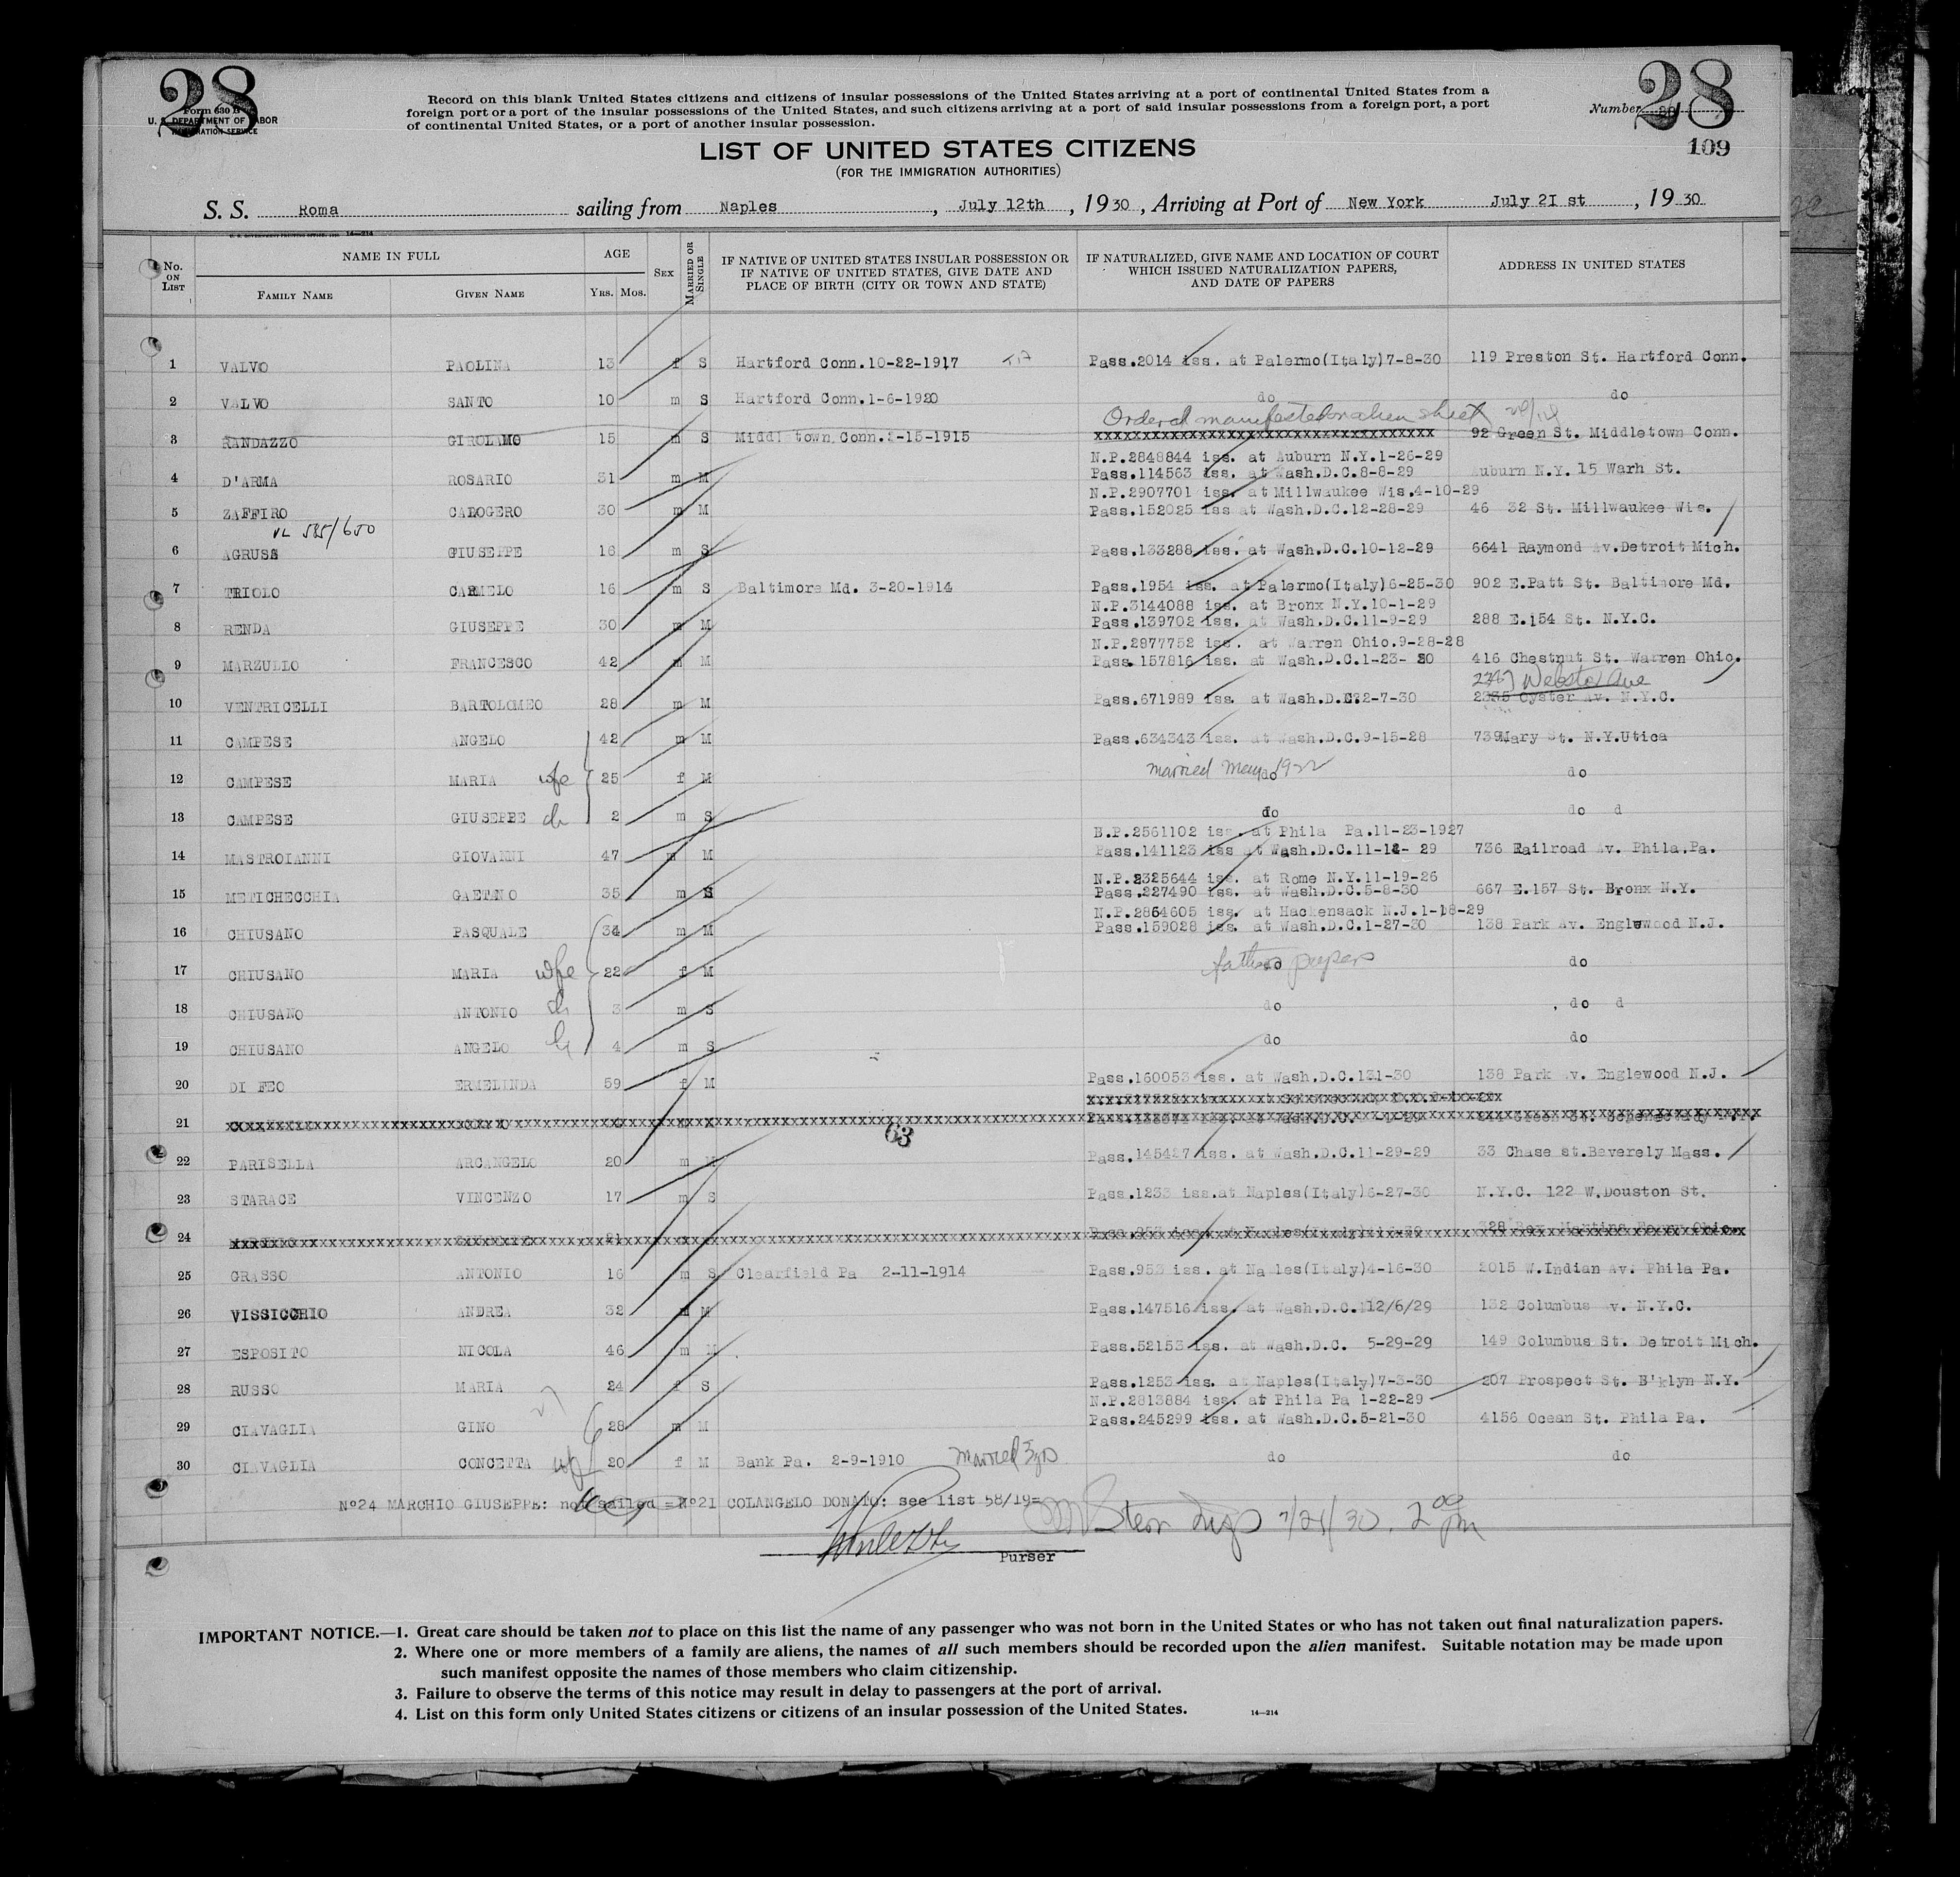 28
28
Form 630 B
U. S. DEPARTMENT OF LABOR
IMMIGRATION SERVICE
Number
109
Record on this blank United States citizens and citizens of insular possessions of the United States arriving at a port of continental United States from a
foreign port or a port of the insular possessions of the United States, and such citizens arriving at a port of said insular possessions from a foreign port, a port
of continental United States, or a port of another insular possession.
LIST OF UNITED STATES CITIZENS
(FOR THE IMMIGRATION AUTHORITIES)
S. S. Roma sailing from Naples, July 12th, 1930, Arriving at Port of New York July 2I st, 1930
14—214
No. ON LIST NAME IN FULL AGE SEX MARRIED OR SINGLE IF NATIVE OF UNITED STATES INSULAR POSSESSION OR IF NATIVE OF UNITED STATES, GIVE DATE AND PLACE OF BIRTH (CITY OR TOWN AND STATE) IF NATURALIZED, GIVE NAME AND LOCATION OF COURT WHICH ISSUED NATURALIZATION PAPERS, AND DATE OF PAPERS ADDRESS IN UNITED STATES
FAMILY NAME GIVEN NAME YRS. MOS.
1 VALVO PAOLINA 13 f S Hartford Conn.10-22-1917 Pass.2014 iss. at Palermo(Italy)7-8-30 119 Preston St. Hartford Conn.
2 VALVO SANTO 10 m S Hartford Conn.1-6-1920 do do
Ordered manifested on alien sheet
3 RANDAZZO GIROLAMO 15 m S Middletown Conn. -15-1915 xxxxxxxxxxxxxxxxxxxxxxxxxxxxxxxxxx 92 Green St. Middletown Conn.
N.P.2848844 iss. at Auburn N.Y.1-26-29
4 D'ARMA ROSARIO 31 m M Pass.114563 iss. at Wash.D.C.8-8-29 Auburn N.Y. 15 Warh St.
N.P.2907701 iss. at Millwaukee Wis.4-10-29
5 ZAFFIRO CALOGERO 30 m M Pass.152025 iss at Wash.D.C.12-28-29 46 32 St. Millwaukee Wis.
VL 585/650
6 AGRUSA GIUSEPPE 16 m S Pass.133288 iss. at Wash.D.C.10-12-29 6641 Raymond Av.Detroit Mich.
7 TRIOLO CARMELO 16 m S Baltimore Md. 3-20-1914 Pass.1954 iss. at Palermo(Italy)6-25-30 902 E.Patt St. Baltimore Md.
N.P.3144088 iss. at Bronx N.Y.10-1-29
8 RENDA GIUSEPPE 30 m M Pass.139702 iss. at Wash.D.C.11-9-29 288 E.154 St. N.Y.C.
N.P.2877752 iss. at Warren Ohio.9-28-28
9 MARZULLO FRANCESCO 42 m M Pass.157816 iss. at Wash.D.C.1-23-30 416 Chestnut St. Warren Ohio.
2347 Webster Ave
10 VENTRICELLI BARTOLOMEO 28 m M Pass.671989 iss. at Wash.D.C.2-7-30 2335 Oyster Av. N.Y.C.
11 CAMPESE ANGELO 42 m M Pass.634343 iss. at Wash.D.C.9-15-28 739 Mary St. N.Y.Utica
12 CAMPESE MARIA wfe 25 f M married May 1922 do do
13 CAMPESE GIUSEPPE ch 2 m S do do d
N.P.2561102 iss. at Phila Pa.11-23-1927
14 MASTROIANNI GIOVANNI 47 m M Pass.141123 iss at Wash.D.C.11-14- 29 736 Railroad Av. Phila.Pa.
N.P.2325644 iss. at Rome N.Y.11-19-26
15 METICHECCHIA GAETANO 35 m S Pass.227490 iss. at Wash.D.C.5-8-30 667 E.157 St. Bronx N.Y.
N.P.2864605 iss. at Hackensack N.J.1-18-29
16 CHIUSANO PASQUALE 34 m M Pass.159028 iss. at Wash.D.C.1-27-30 138 Park Av. Englewood N.J.
17 CHIUSANO MARIA wfe 22 f M fathers papers do do
18 CHIUSANO ANTONIO ch 3 m S do do d
19 CHIUSANO ANGELO 4 m S do do
20 DI FEO ERMELINDA 59 f M Pass.160053 iss. at Wash.D.C.131-30 138 Park Av. Englewood N.J.
21
63
22 PARISELLA ARCANGELO 20 m M Pass.145427 iss. at Wash.D.C.11-29-29 33 Chase st.Beverely Mass.
23 STARACE VINCENZO 17 m S Pass.1233 iss.at Naples(Italy)6-27-30 N.Y.C. 122 W.Douston St.
24 328 Box Martins Ferry Ohio.
25 GRASSO ANTONIO 16 m S Clearfield Pa 2-11-1914 Pass.953 iss. at Na les(Italy)4-16-30 2015 W.Indian Av. Phila Pa.
26 VISSICCHIO ANDREA 32 m M Pass.147516 iss. at Wash.D.C.12/6/29 132 Columbus Av. N.Y.C.
27 ESPOSITO NICOLA 46 m M Pass.52153 iss. at Wash.D.C. 5-29-29 149 Columbus St. Detroit Mich.
28 RUSSO MARIA 24 f S Pass.1253 iss. at Naples(Italy)7-3-30 207 Prospect St. B'klyn N.Y.
N.P.2813884 iss. at Phila Pa 1-22-29
29 CIAVAGLIA GINO 28 m M Pass.245299 iss. at Wash.D.C.5-21-30 4156 Ocean St. Phila Pa.
30 CIAVAGLIA CONCETTA wf 20 f M Bank Pa. 2-9-1910 Married 3yrs do do
Nº24 MARCHIO GIUSEPPE: not sailed = Nº21 COLANGELO DONATO: see list 58/19=
Stern Insp 7/21/30. 2 00 pm
Purser
IMPORTANT NOTICE.—1. Great care should be taken not to place on this list the name of any passenger who was not born in the United States or who has not taken out final naturalization papers.
2. Where one or more members of a family are aliens, the names of all such members should be recorded upon the alien manifest. Suitable notation may be made upon
such manifest opposite the names of those members who claim citizenship.
3. Failure to observe the terms of this notice may result in delay to passengers at the port of arrival.
4. List on this form only United States citizens or citizens of an insular possession of the United States.
14—214